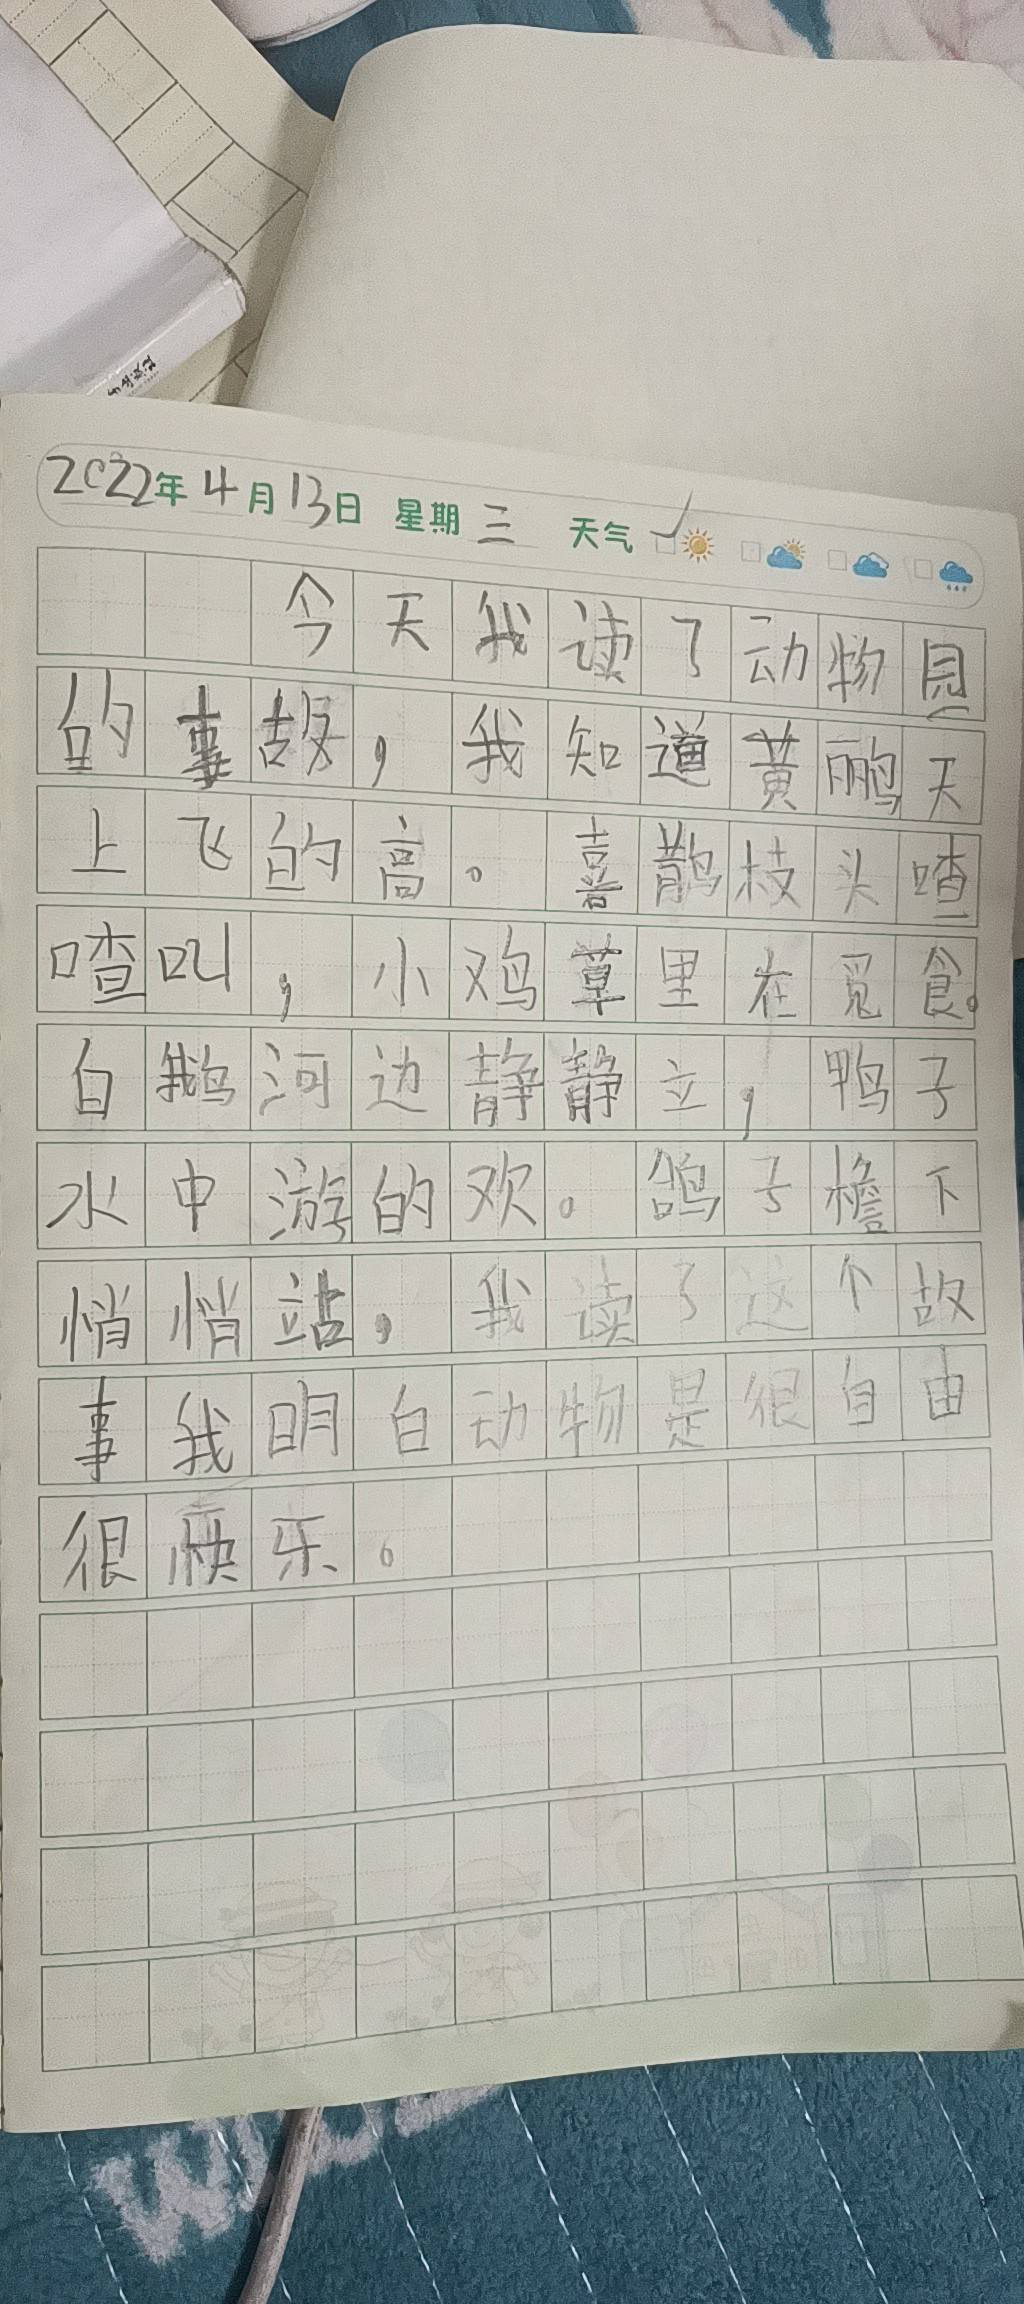 2022年4月13日 星期三 天气
今天我读了动物园
的事故，我知道黄鹂天
上飞的高。喜鹊枝头喳
喳叫，小鸡草里在觅食。
白鹅河边静静立，鸭子
水中游的欢。鸽子檐下
悄悄站，我读了这个故
事我明白动物是很自由
很快乐。